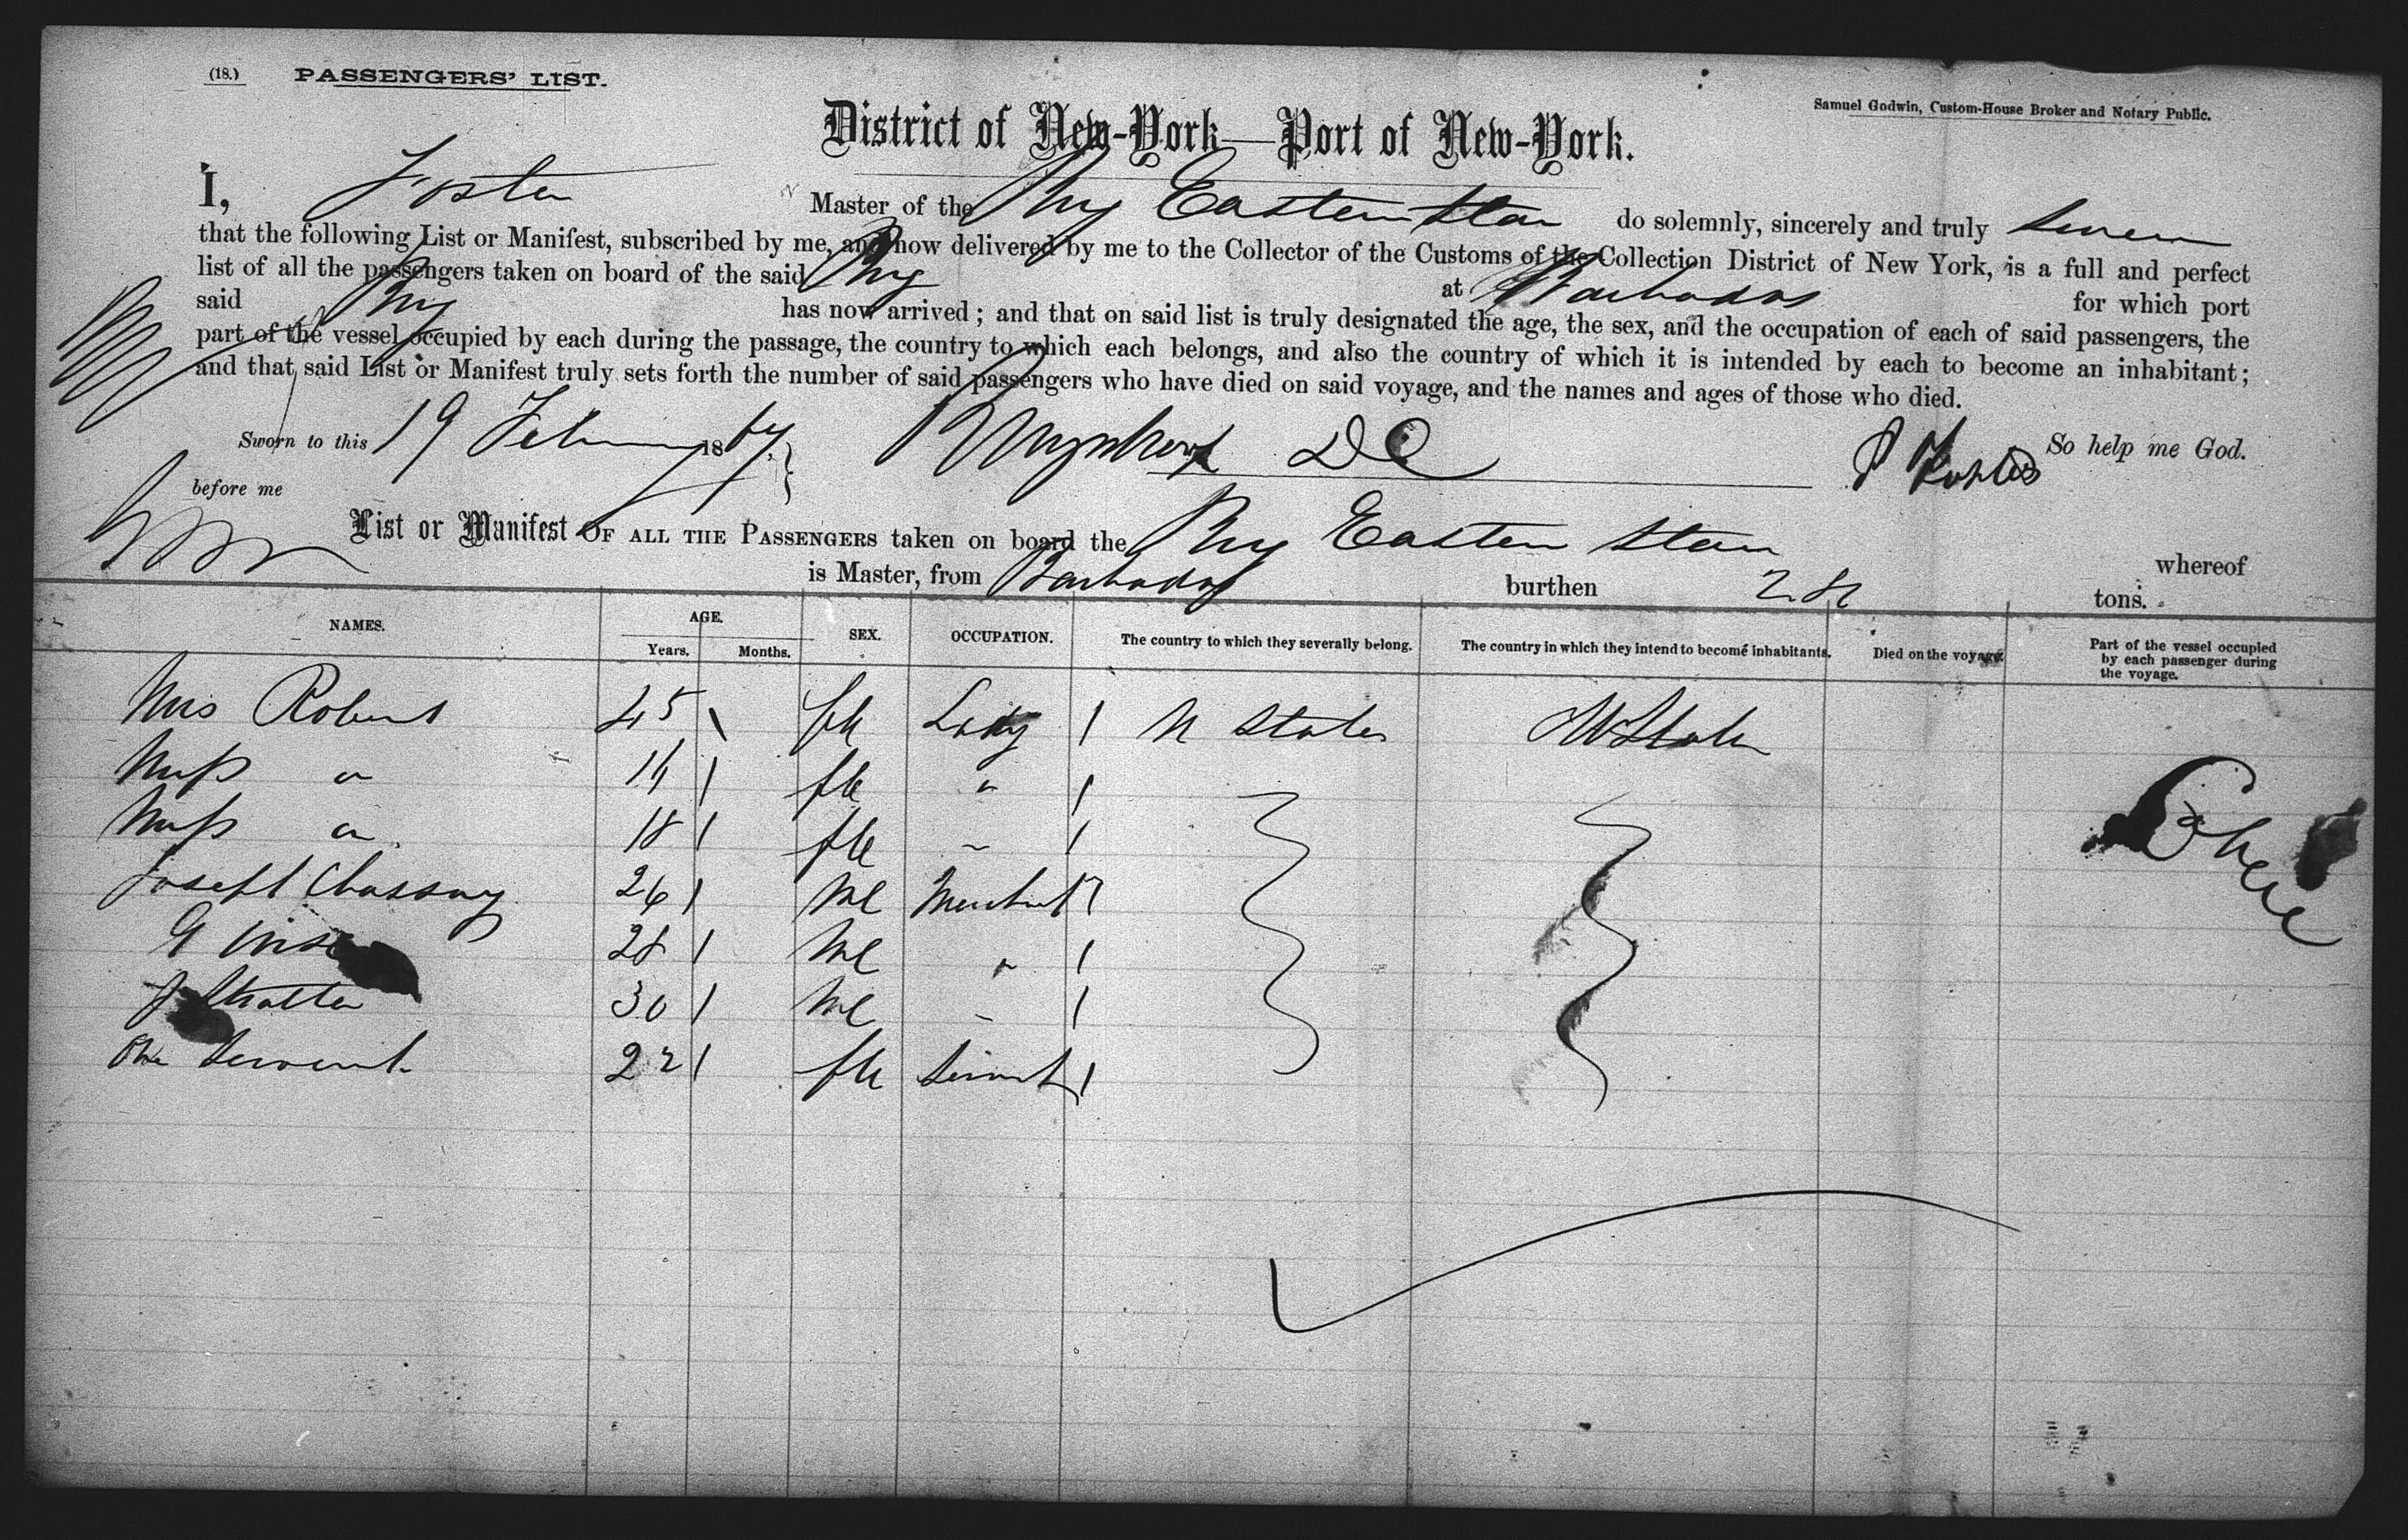 (18.) PASSENGERS' LIST.
Samuel Godwin, Custom-House Broker and Notary Public.
District of New-York—Port of New-York.
I, Foster Master of the Brig Eastern Star do solemnly, sincerely and truly swear
that the following List or Manifest, subscribed by me, and now delivered by me to the Collector of the Customs of the Collection District of New York, is a full and perfect
list of all the passengers taken on board of the said Brig at Barbados for which port
said Brig has now arrived; and that on said list is truly designated the age, the sex, and the occupation of each of said passengers, the
part of the vessel occupied by each during the passage, the country to which each belongs, and also the country of which it is intended by each to become an inhabitant;
and that said List or Manifest truly sets forth the number of said passengers who have died on said voyage, and the names and ages of those who died.
So help me God.
Sworn to this 19 February 1867
before me
List or Manifest OF ALL THE PASSENGERS taken on board the Brig Eastern Star whereof
is Master, from Barbados burthen tons.
NAMES. AGE. Years. Months. SEX. OCCUPATION. The country to which they severally belong. The country in which they intend to become inhabitants. Died on the voyage. Part of the vessel occupied by each passenger during the voyage.
Mrs Robert 45 fle Lady U States U States
Miss " fle "
Miss " 18 fle "
Joseph 26 Me Merchant
28 Me "
30 Me "
One Servant 22 fle Servant